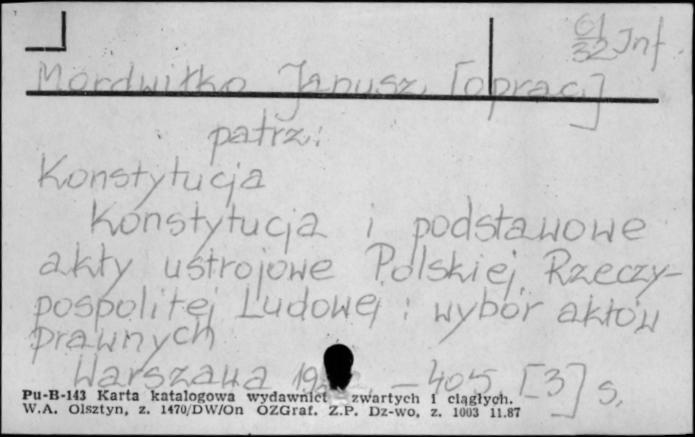 61
32 Inf.
Mordwiłko Janusz [oprac.]
patrz:
Konstytucja
Konstytucja i podstawowe
akty ustrojowe Polskiej Rzeczy-
pospolitej Ludowej : wybór aktów
prawnych
Warszawa – 405, [3] s.
Pu-B-143 Karta katalogowa wydawnict zwartych i ciągłych.
W.A. Olsztyn, z. 1470/DW/On OZGraf. Z.P. Dz-wo, z. 1003 11.87